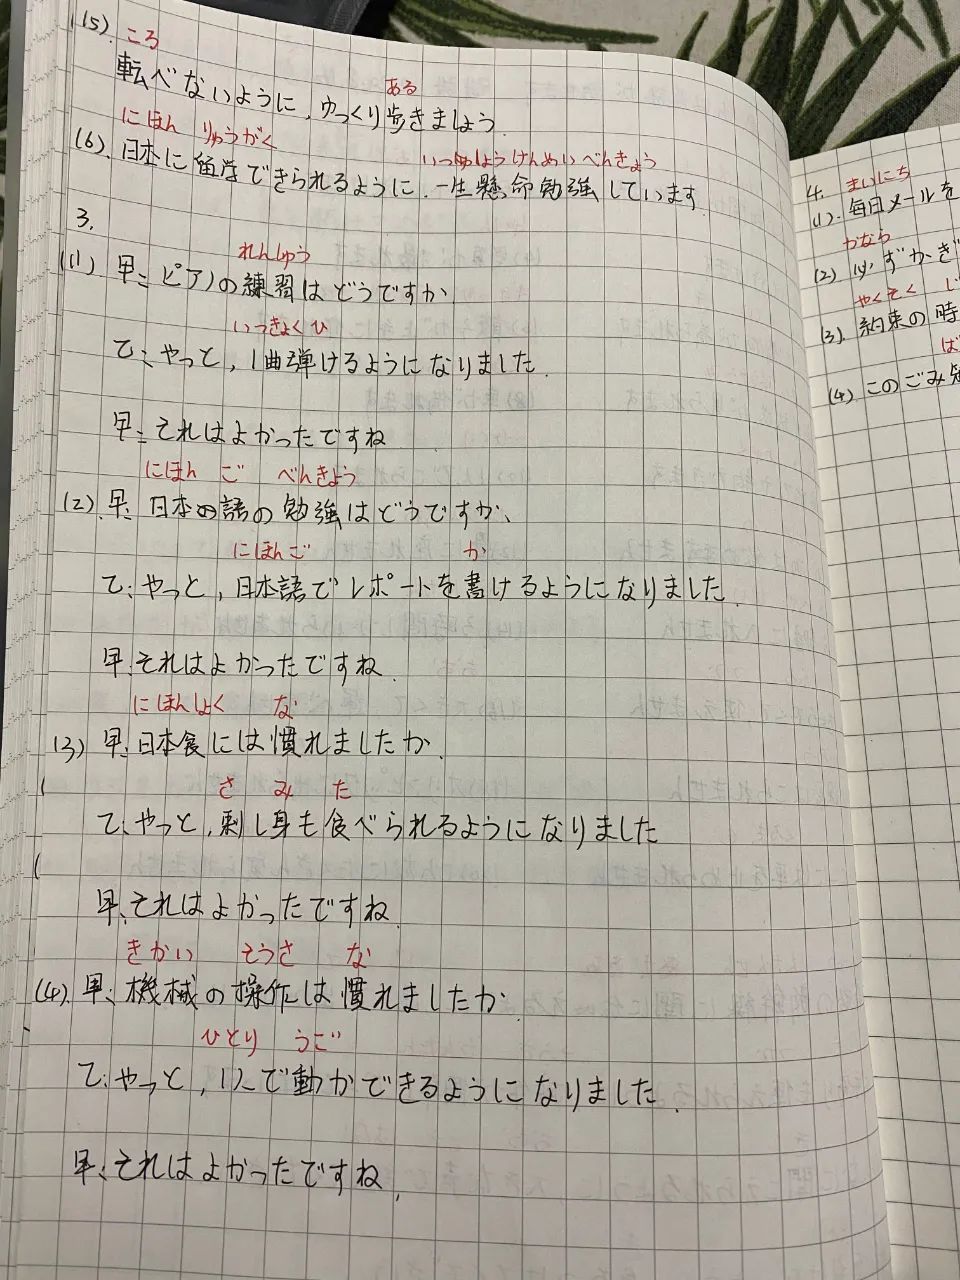 (5). ころ
転べないように,ゆっくり歩きましょう.
ある
にほん りゅうがく いっしょうけんめい べんきょう
(6). 日本に留学できられるように.一生懸命勉強しています.
3.
れんしゅう
(1) 早: ピアノの練習はどうですか.
いっきょく ひ
て: やっと, 1曲弾けるようになりました.
早: それはよかったですね
にほん ご べんきょう
(2). 早: 日本の語の勉強はどうですか、
にほんご か
て: やっと, 日本語でレポートを書けるようになりました.
早: それはよかったですね.
にほんしょく な
(3) 早: 日本食には慣れましたか.
さ み た
て: やっと, 刺し身も食べられるようになりました
早: それはよかったですね.
きかい そうさ な
(4). 早: 機械の操作は慣れましたか.
ひとり うご
て: やっと, 1人で動かできるようになりました.
早: それはよかったですね.
4. まいにち
(1). 毎日メールを
かなら
(2) 必ずかぎ
やくそく じ
(3). 約束の時
(4) このごみ